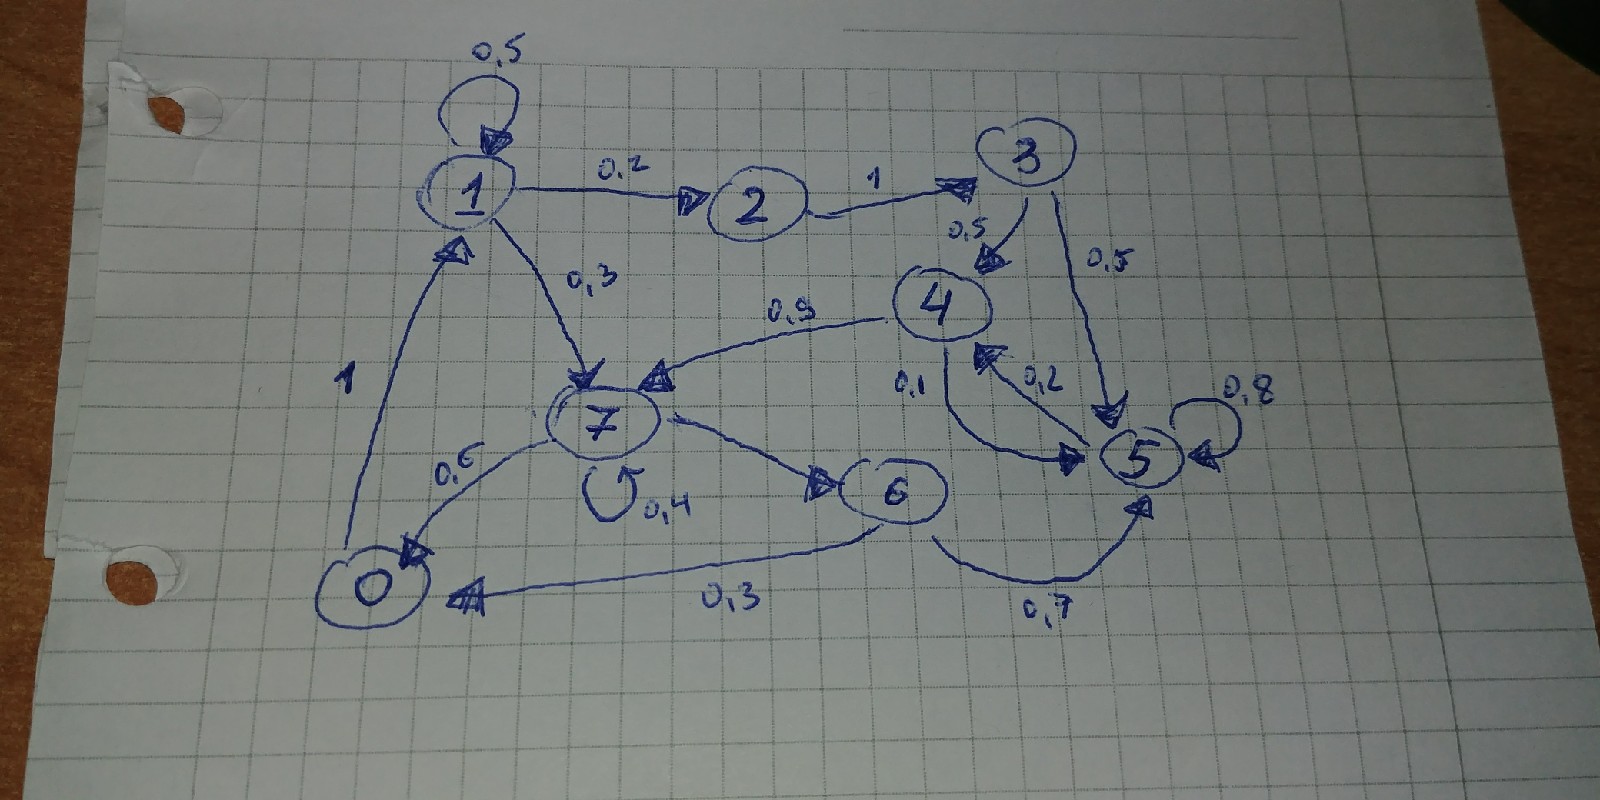 0,5
1
0,2
2
1
3
0,5
0,5
0,3
4
0,9
0,1
0,2
0,8
1
7
5
0,6
0,4
6
0
0,3
0,7